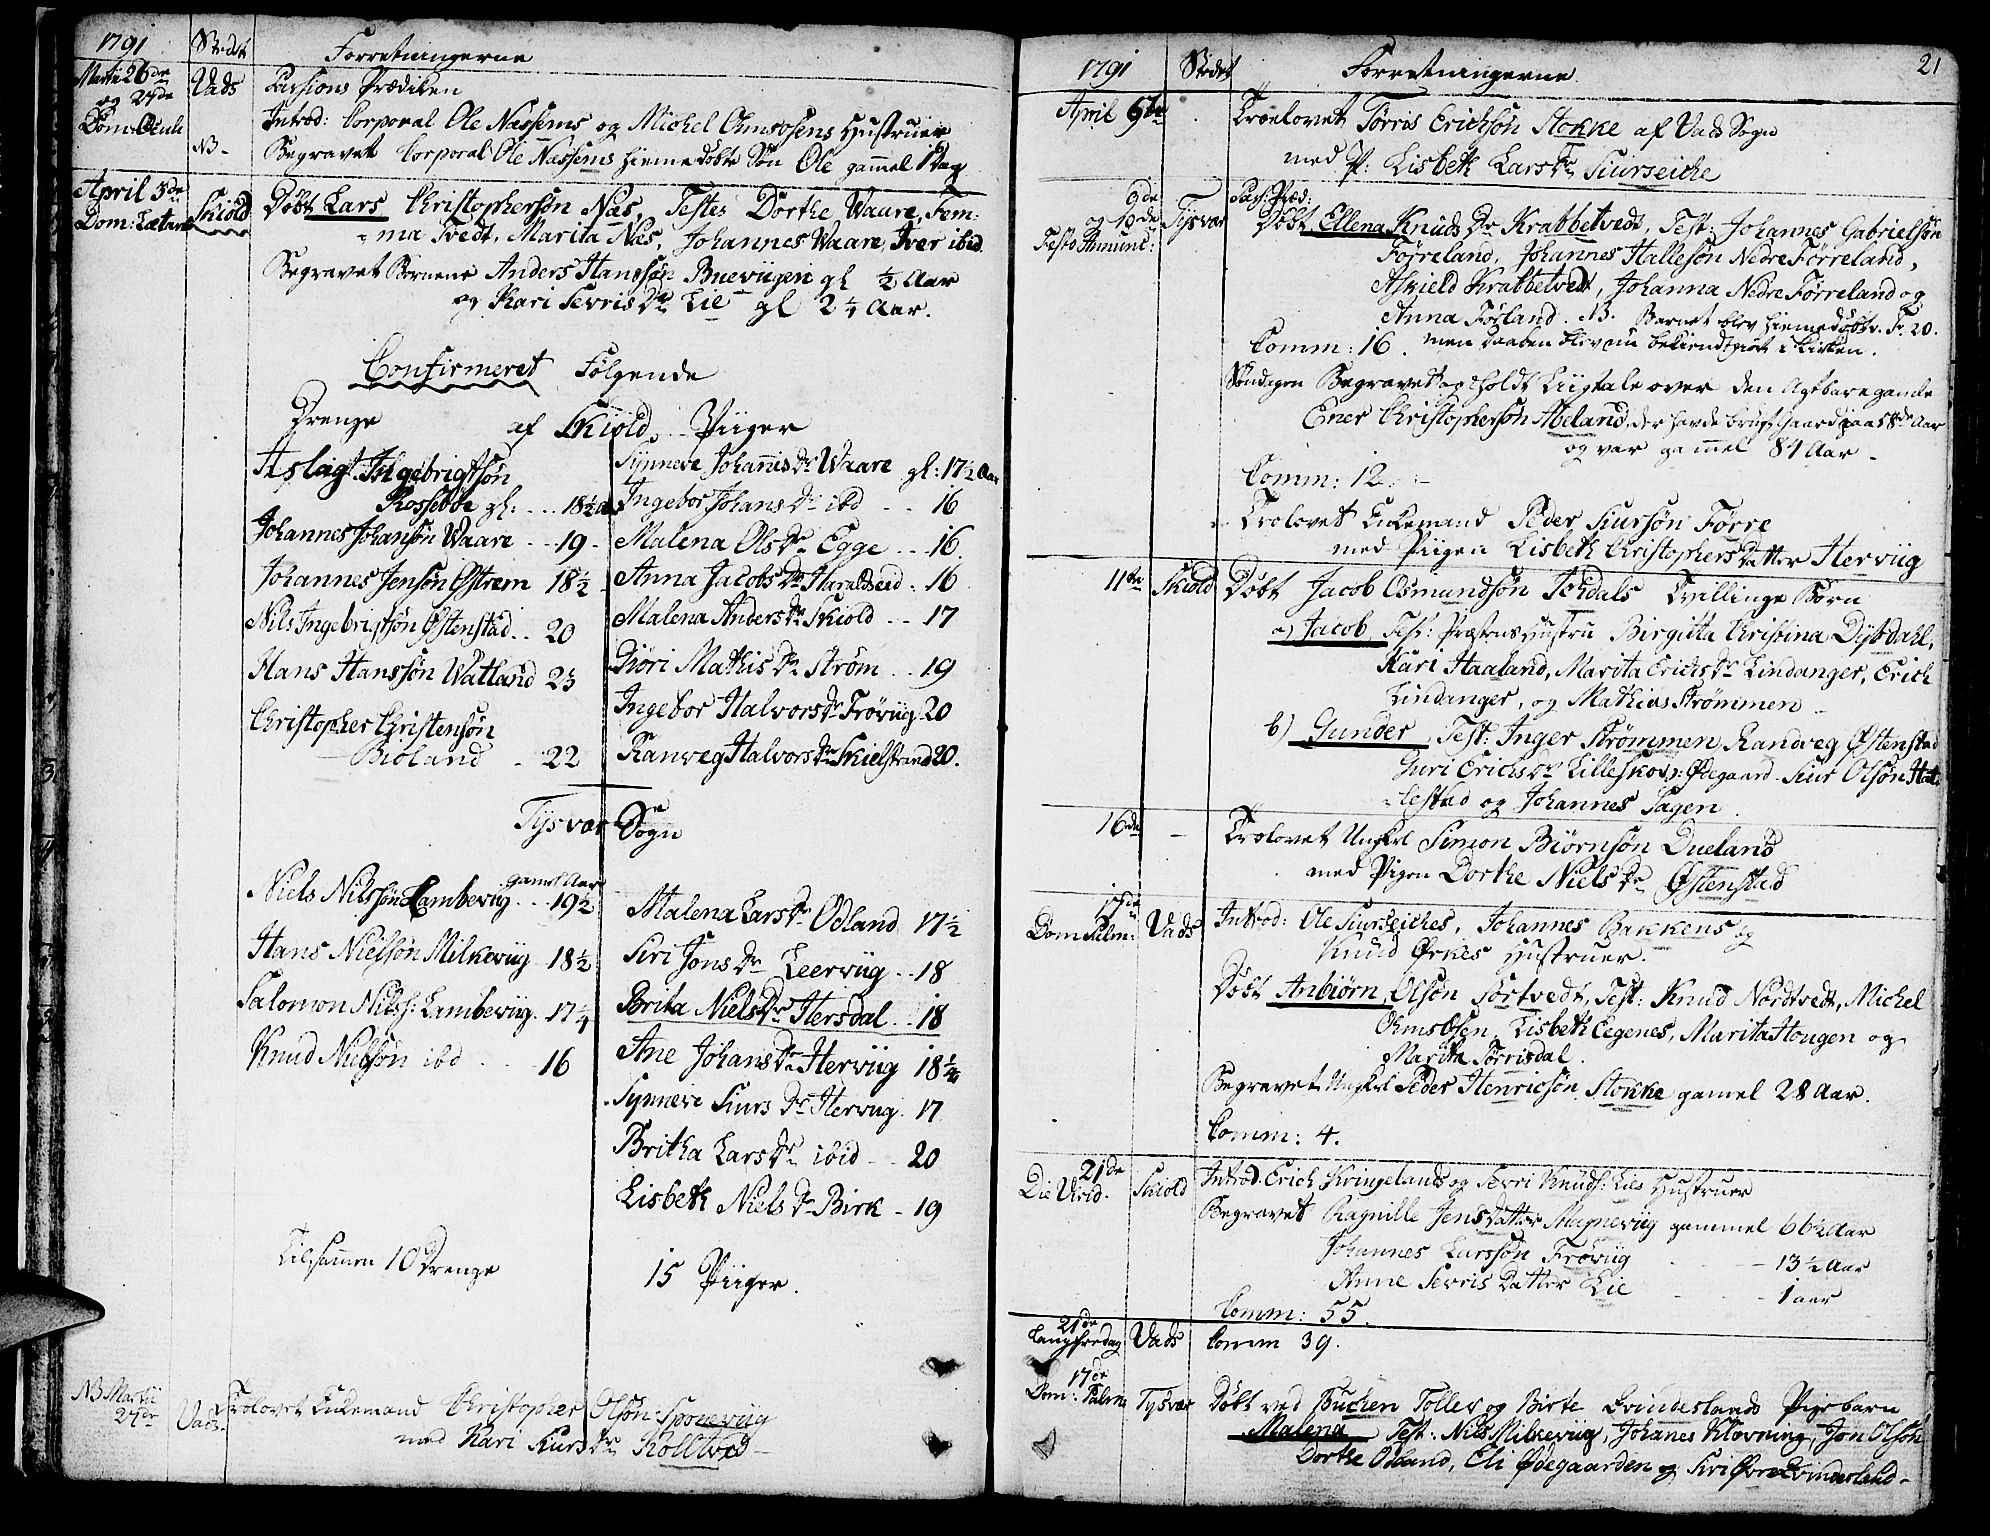 1791 Stedet Forretningerne
Martii 26de Vads Passions Prædiken
og 27de
Dom: Oculi Introd: Corporal Ole Næssems og Michel Omsosens Hustruer
NB - Begravet Corporal Ole Næssems hiemedøbte Søn Ole gam̄el 1 Dag
April 3de Skiold Døbt Lars Christophersøn Næs, Testes Dorthe Waare, Fem-
Dom: Lætare ma Tvedt, Marita Næs, Johannes Waare, Iver ibid.
Begravet Børnene Anders Hanssøn Bueviigen gl ½ Aar
og Kari Sevris Dr Lie gl 2¼ Aar.
Confirmeret Følgende
Drenge af Skiold Piiger
Aslag Ingebrigtsøn Synneve Johannis Dr Waare gl: 17½ Aar
Rossebøe gl: 18½ Aar Ingebor Johans Dr ibd 16
Johannes Johansøn Waare 19 Malena Ols Dr Egge 16
Johannes Jensøn Østrem 18½ Anna Jacobs Dr Haraldseid 16
Nils Ingebrigtsøn Østenstad 20 Malena Anders Dr Skiold 17
Hans Hanssøn Watland 23 Giøri Mathis Dr Strøm 19
Christopher Christensøn Ingebor Halvors Dr Frøviig 20
Bioland 22 Ranveg Halvors Dr Skielstrand 20.
Tysvær Sogn
gamel Aar
Niels Nilssøn Lambeviig 19½ Malena Lars Dr Odland 17½
Hans Nielsøn Milkeviig 18½ Siri Jons Dr Leerviig 18
Salomon Nilss: Lambeviig 17¼ Brita Niels Dr Hersdal 18
Knud Nielsøn ibd 16 Ane Johans Dr Herviig 18¼
Synneve Siurs Dr Herviig 17
Britha Lars Dr ibid 20
Lisbeth Niels Dr Birk 19
Tilsam̄en 10 Drenge 15 Piiger.
NB Martii Trolovet Enkemand Christopher Olsøn Sponeviig
27de Vads med Kari Siurs Dr Kolltved
1791 Stedet Forretningerne 21
April 6te Troelovet Tørris Erichsøn Stokke af Vads Sogn
med P: Lisbeth Lars Dr Siurseiche
9de Pass: Præd:
og 10de Tysvær Døbt Ellena Knuds Dr Krabbetvedt, Test: Johannes Gabrielsøn
Førreland, Johannes Hallesøn Nedre Førreland,
Askield Krabbetvedt, Johanna Nedre Førreland og
Anna Førland. NB. Barnet blev hiemedøbt Fr. 20.
Comm: 16. men Daaben blev nu bekiendtgiort i Kirken.
Søndagen Begravet og holdt Liigtale over den Agtbare gamle
Ener Christophersøn Abeland, der havde brugt Gaard paa 58de Aar
og var gammel 84 Aar
Comm: 12.
Trolovet Enkemand Peder Siursøn Førre
med Piigen Lisbeth Christophers Datter Herviig
11te Skiold Døbt Jacob Osmundsøn Isdals Tvillinge Børn
a) Jacob Test: Præstens Hustru Birgitta Christina Dybdahl,
Kari Haaland, Marita Erichs Dr Lindanger, Erich
Lindanger, og Mathias Strømmen
b) Gunder, Test: Inger Strømmen, Randveg Østenstad
Guri Erichs Dr Lilleskov, Ødegaard Siur Olsøn Hat-
lestad og Johannes Sagen.
16de - Trolovet Ungkrl Simon Biørnsøn Dueland
med Pigen Dorthe Niels Dr Østenstad
17de
Dom Palm: Vads Introd: Ole Siurseiches, Johannes Bakkens og
Knud Ørkes Hustruer.
Døbt Anbiørn Olsøn Sortvedt, Test: Knud Nordtvedt, Michel
Omsosen, Lisbeth Eegenes, Marita Hougen og
Marita Tørrisdal.
Begravet Ungkrl Peder Henricsøn Stokke gamel 28 Aar.
Comm: 4.
21de
Die Virid. Skiold Introd. Erich Kringelands og Sevri Knuds: Lies Hustruer
Begravet Ragnille Jens Datter Magneviig gammel 66½ Aar
Johannes Larssøn Frøviig 13½ Aar
Anne Sevris Datter Lie 1 aar
Comm: 55.
21de
Langfredag Vads Comm 39.
17de
Dom: Palm Tysvær Døbt ved Buchen Tollev og Birte Qvindeslands Pigebarn
Malena Test: Nils Milkeviig, Johanes Kløvning, Jon Olsøn
Dorthe Odland, Eli Ødegaarden og Siri Øvre Qvindesland.